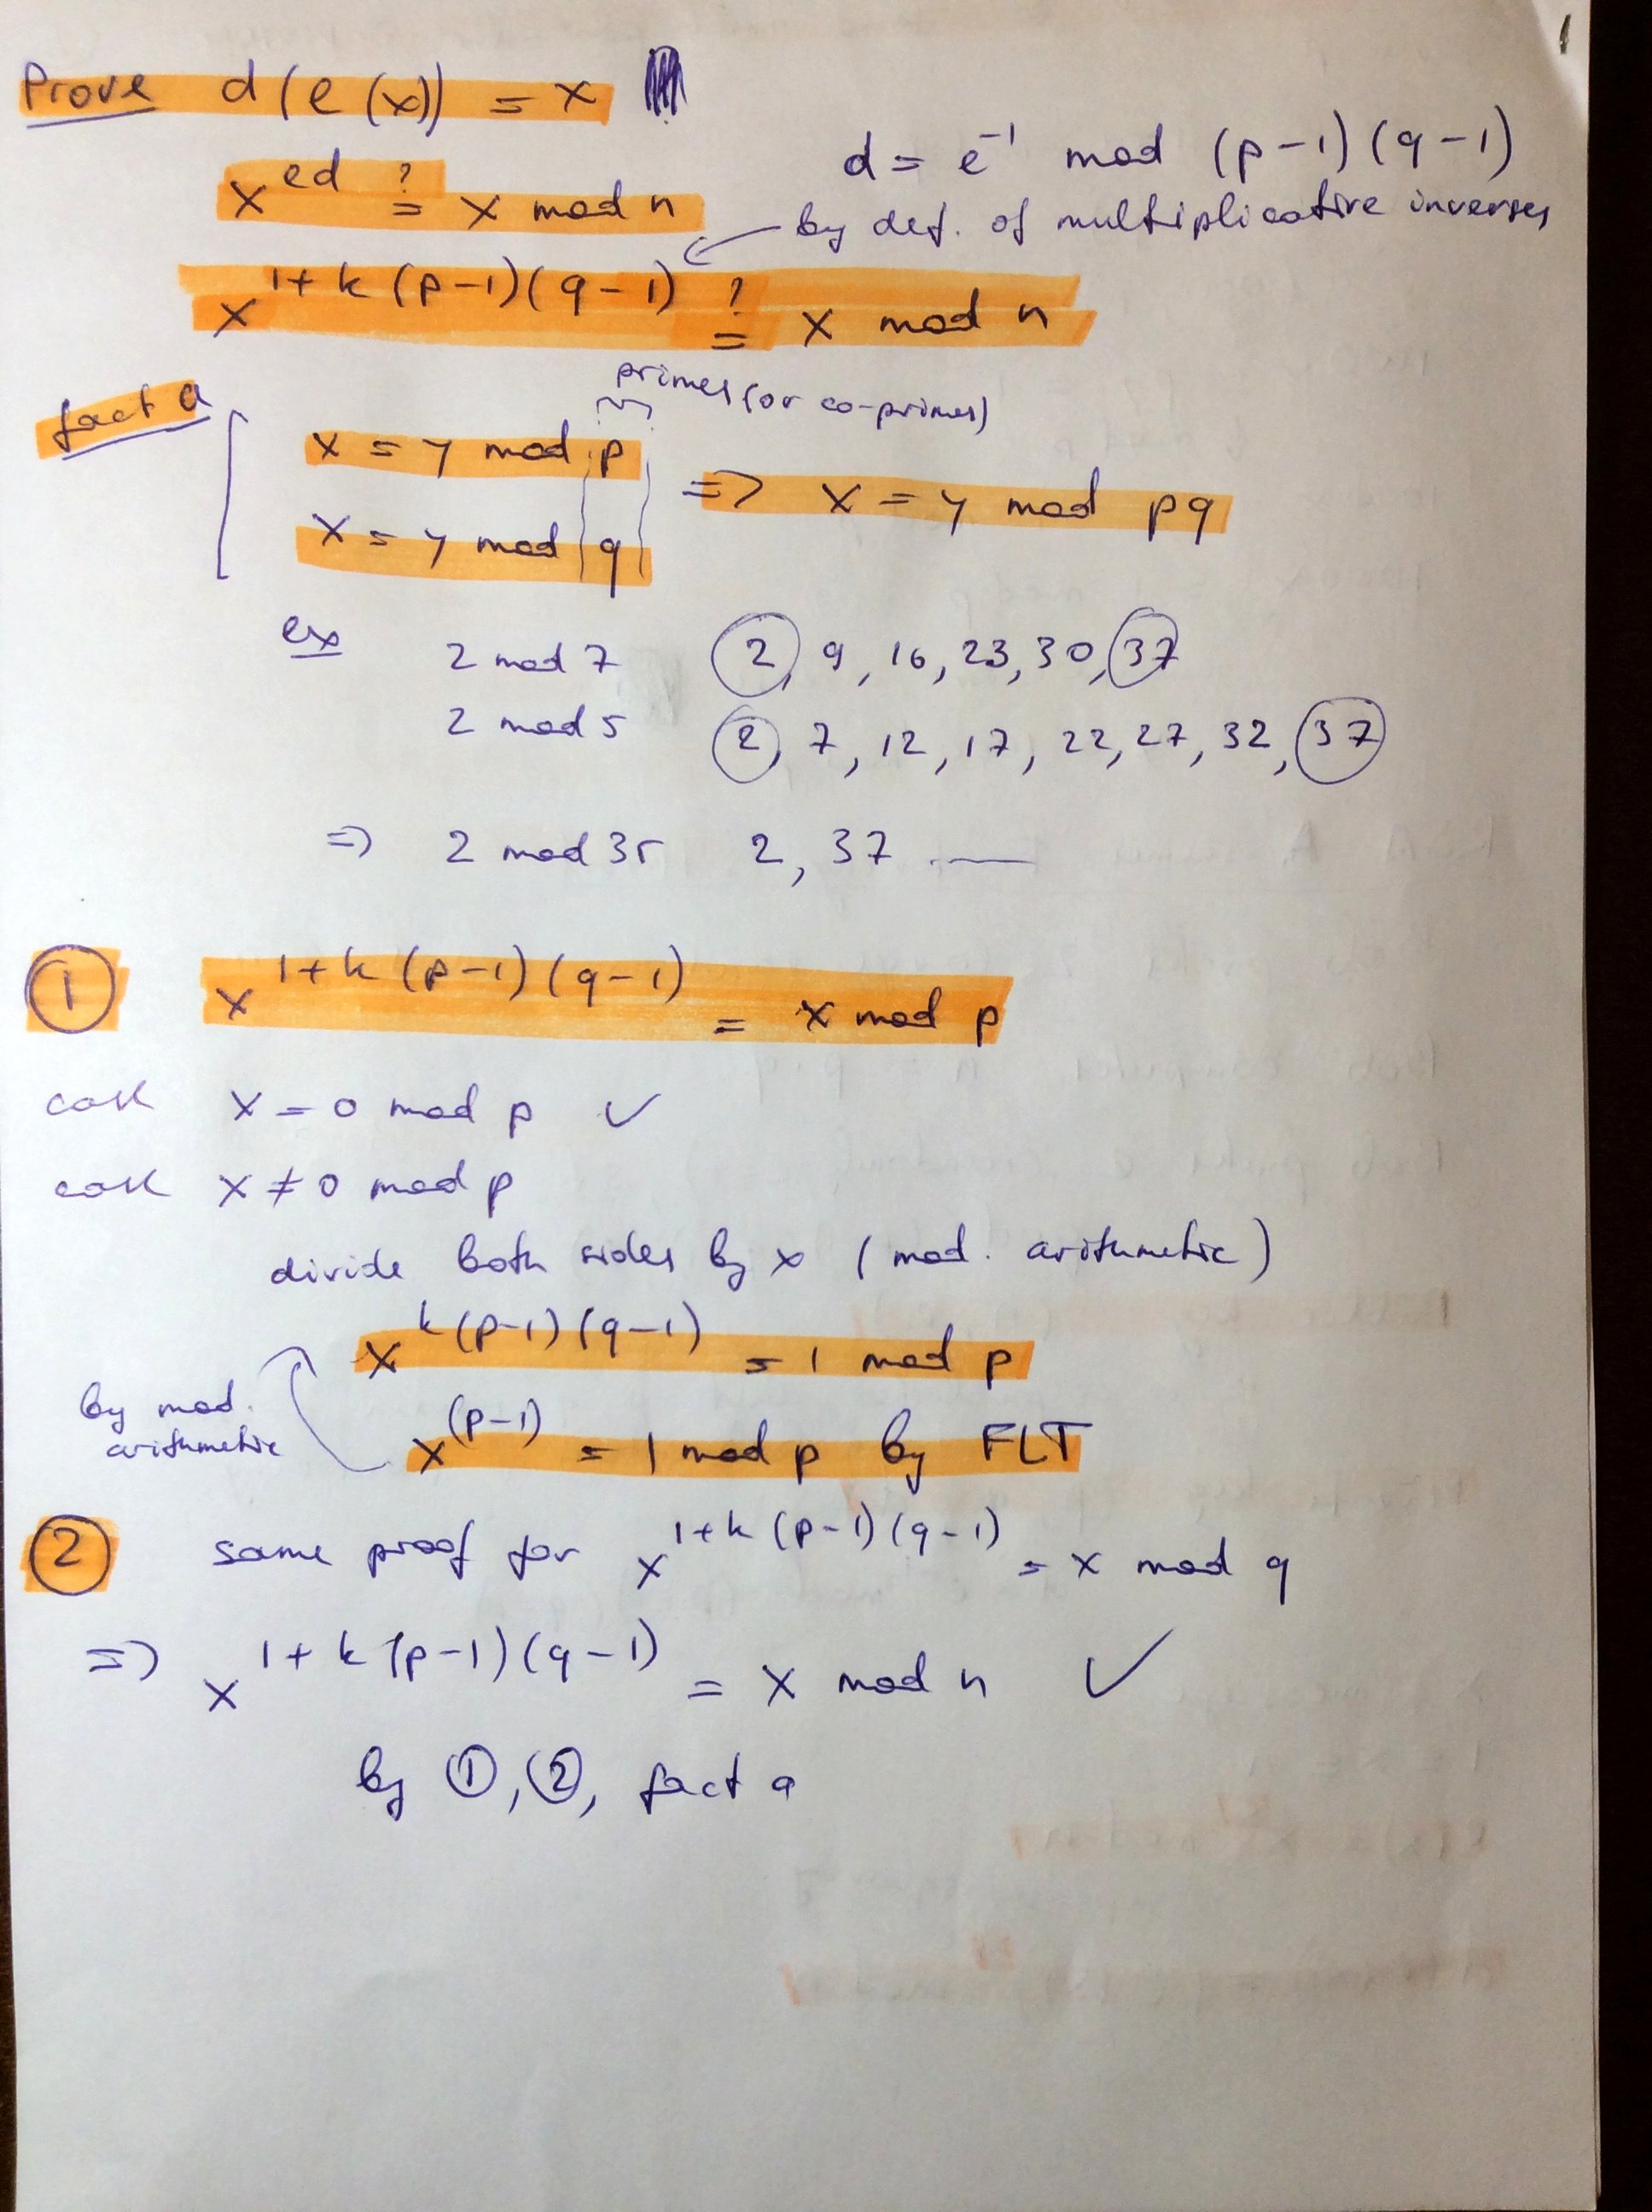 Prove d(e(x)) = x
d = e⁻¹ mod (p-1)(q-1)
x^ed ?= x mod n
by def. of multiplicative inverses
x^1+k(p-1)(q-1) ?= x mod n
primes (or co-primes)
fact a
x = y mod p
=> x = y mod pq
x = y mod q
ex 2 mod 7 2, 9, 16, 23, 30, 37
2 mod 5 2, 7, 12, 17, 22, 27, 32, 37
=> 2 mod 35 2, 37 .——
① x^1+k(p-1)(q-1) = x mod p
case x = 0 mod p ✓
case x ≠ 0 mod p
divide both sides by x (mod. arithmetic)
x^k(p-1)(q-1) = 1 mod p
by mod.
arithmetic
x^(p-1) = 1 mod p by FLT
② same proof for x^1+k(p-1)(q-1) = x mod q
=> x^1+k(p-1)(q-1) = x mod n ✓
by ①, ②, fact a
1